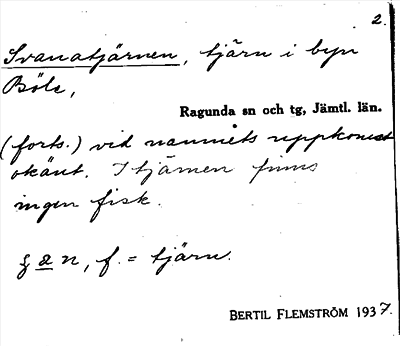 2.
Svanatjärnen, tjärn i byn
Böle,
Ragunda sn och tg, Jämtl. län.
(forts.) vid namnets uppkomst
okänt. I tjärnen finns
ingen fisk.
n, f. = tjärn.
BERTIL FLEMSTRÖM 1937.